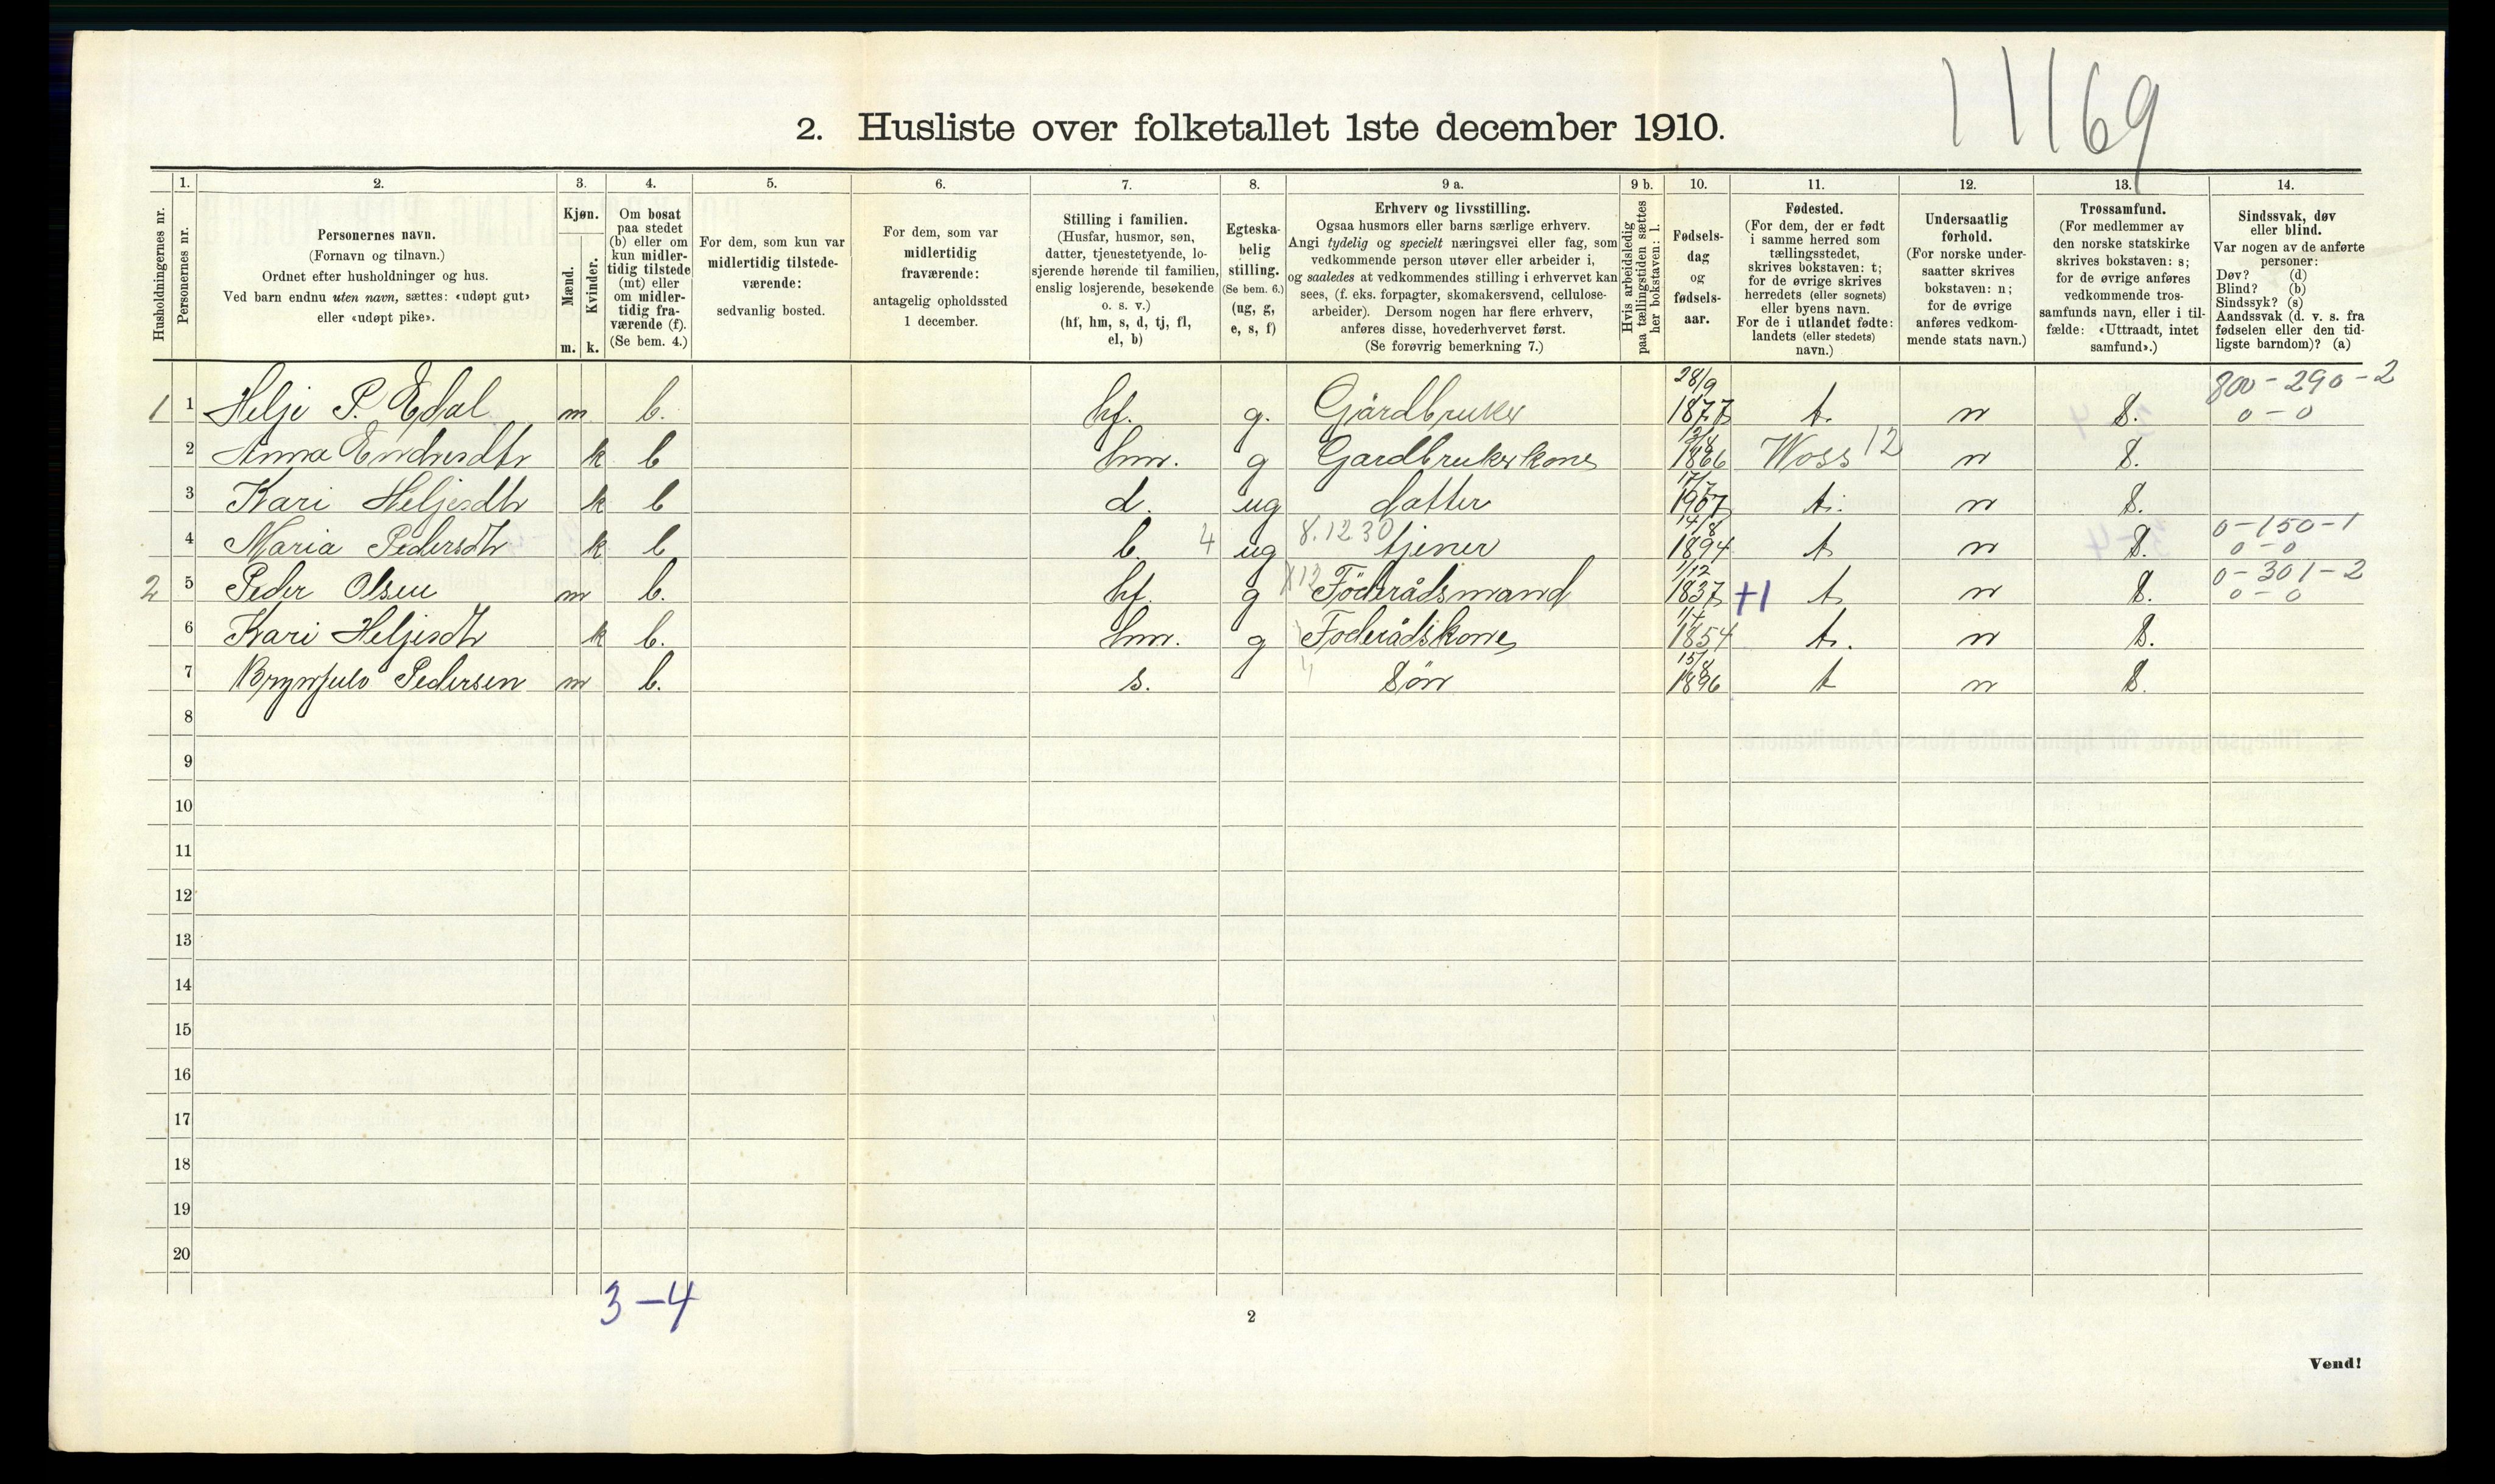 11169
2. Husliste over folketallet 1ste december 1910.
Husholdningernes nr.
1. Personernes nr.
2. Personernes navn.
(Fornavn og tilnavn.)
Ordnet efter husholdninger og hus.
Ved barn endnu uten navn, sættes: «udøpt gut»
eller «udøpt pike».
3. Kjøn.
Mænd. m.
Kvinder. k.
4. Om bosat
paa stedet
(b) eller om
kun midler-
tidig tilstede
(mt) eller
om midler-
tidig fra-
værende (f).
(Se bem. 4.)
5. For dem, som kun var
midlertidig tilstede-
værende:
sedvanlig bosted.
6. For dem, som var
midlertidig
fraværende:
antagelig opholdssted
1 december.
7. Stilling i familien.
(Husfar, husmor, søn,
datter, tjenestetyende, lo-
sjerende hørende til familien,
enslig losjerende, besøkende
o. s. v.)
(hf, hm, s, d, tj, fl,
el, b)
8. Egteska-
belig
stilling.
(Se bem. 6.)
(ug, g,
e, s, f)
9 a. Erhverv og livsstilling.
Ogsaa husmors eller barns særlige erhverv.
Angi tydelig og specielt næringsvei eller fag, som
vedkommende person utøver eller arbeider i,
og saaledes at vedkommendes stilling i erhvervet kan
sees, (f. eks. forpagter, skomakersvend, cellulose-
arbeider). Dersom nogen har flere erhverv,
anføres disse, hovederhvervet først.
(Se forøvrig bemerkning 7.)
9 b. Hvis arbeidsledig
paa tællingstiden sættes
her bokstaven: l.
10. Fødsels-
dag
og
fødsels-
aar.
11. Fødested.
(For dem, der er født
i samme herred som
tællingsstedet,
skrives bokstaven: t;
for de øvrige skrives
herredets (eller sognets)
eller byens navn.
For de i utlandet fødte:
landets (eller stedets)
navn.)
12. Undersaatlig
forhold.
(For norske under-
saatter skrives
bokstaven: n;
for de øvrige
anføres vedkom-
mende stats navn.)
13. Trossamfund.
(For medlemmer av
den norske statskirke
skrives bokstaven: s;
for de øvrige anføres
vedkommende tros-
samfunds navn, eller i til-
fælde: «Uttraadt, intet
samfund».)
14. Sindssvak, døv
eller blind.
Var nogen av de anførte
personer:
Døv? (d)
Blind? (b)
Sindssyk? (s)
Aandssvak (d. v. s. fra
fødselen eller den tid-
ligste barndom)? (a)
1 1 Helje P. Edal m b. hf. g. Gårdbruker 28/9 1877 t. n S. 800-290-2 0-0
2 Anna Endresdtr k b hm. g Gardbrukerkone 1866 Woss 12 n S.
3 Kari Heljesdtr k b d. ug datter 1907 t. n S.
4 Maria Pedersdtr k b b. 4 ug 8.12 30 tjener 14/8 1894 t. n S. 0-150-1 0-0
2 5 Peder Olsen m b. hf. g X12 Föderådsmand 1/12 1837 +1 t. n S. 0-301-2 0-0
6 Kari Heljesdtr k b. hm. g Föderådskone 1854 t. n S.
7 Brynjulv Pedersen m b. s. Sön 15/8 1896 t n S.
8
9
10
11
12
13
14
15
16
17
18
19
20
3-4
2
Vend!